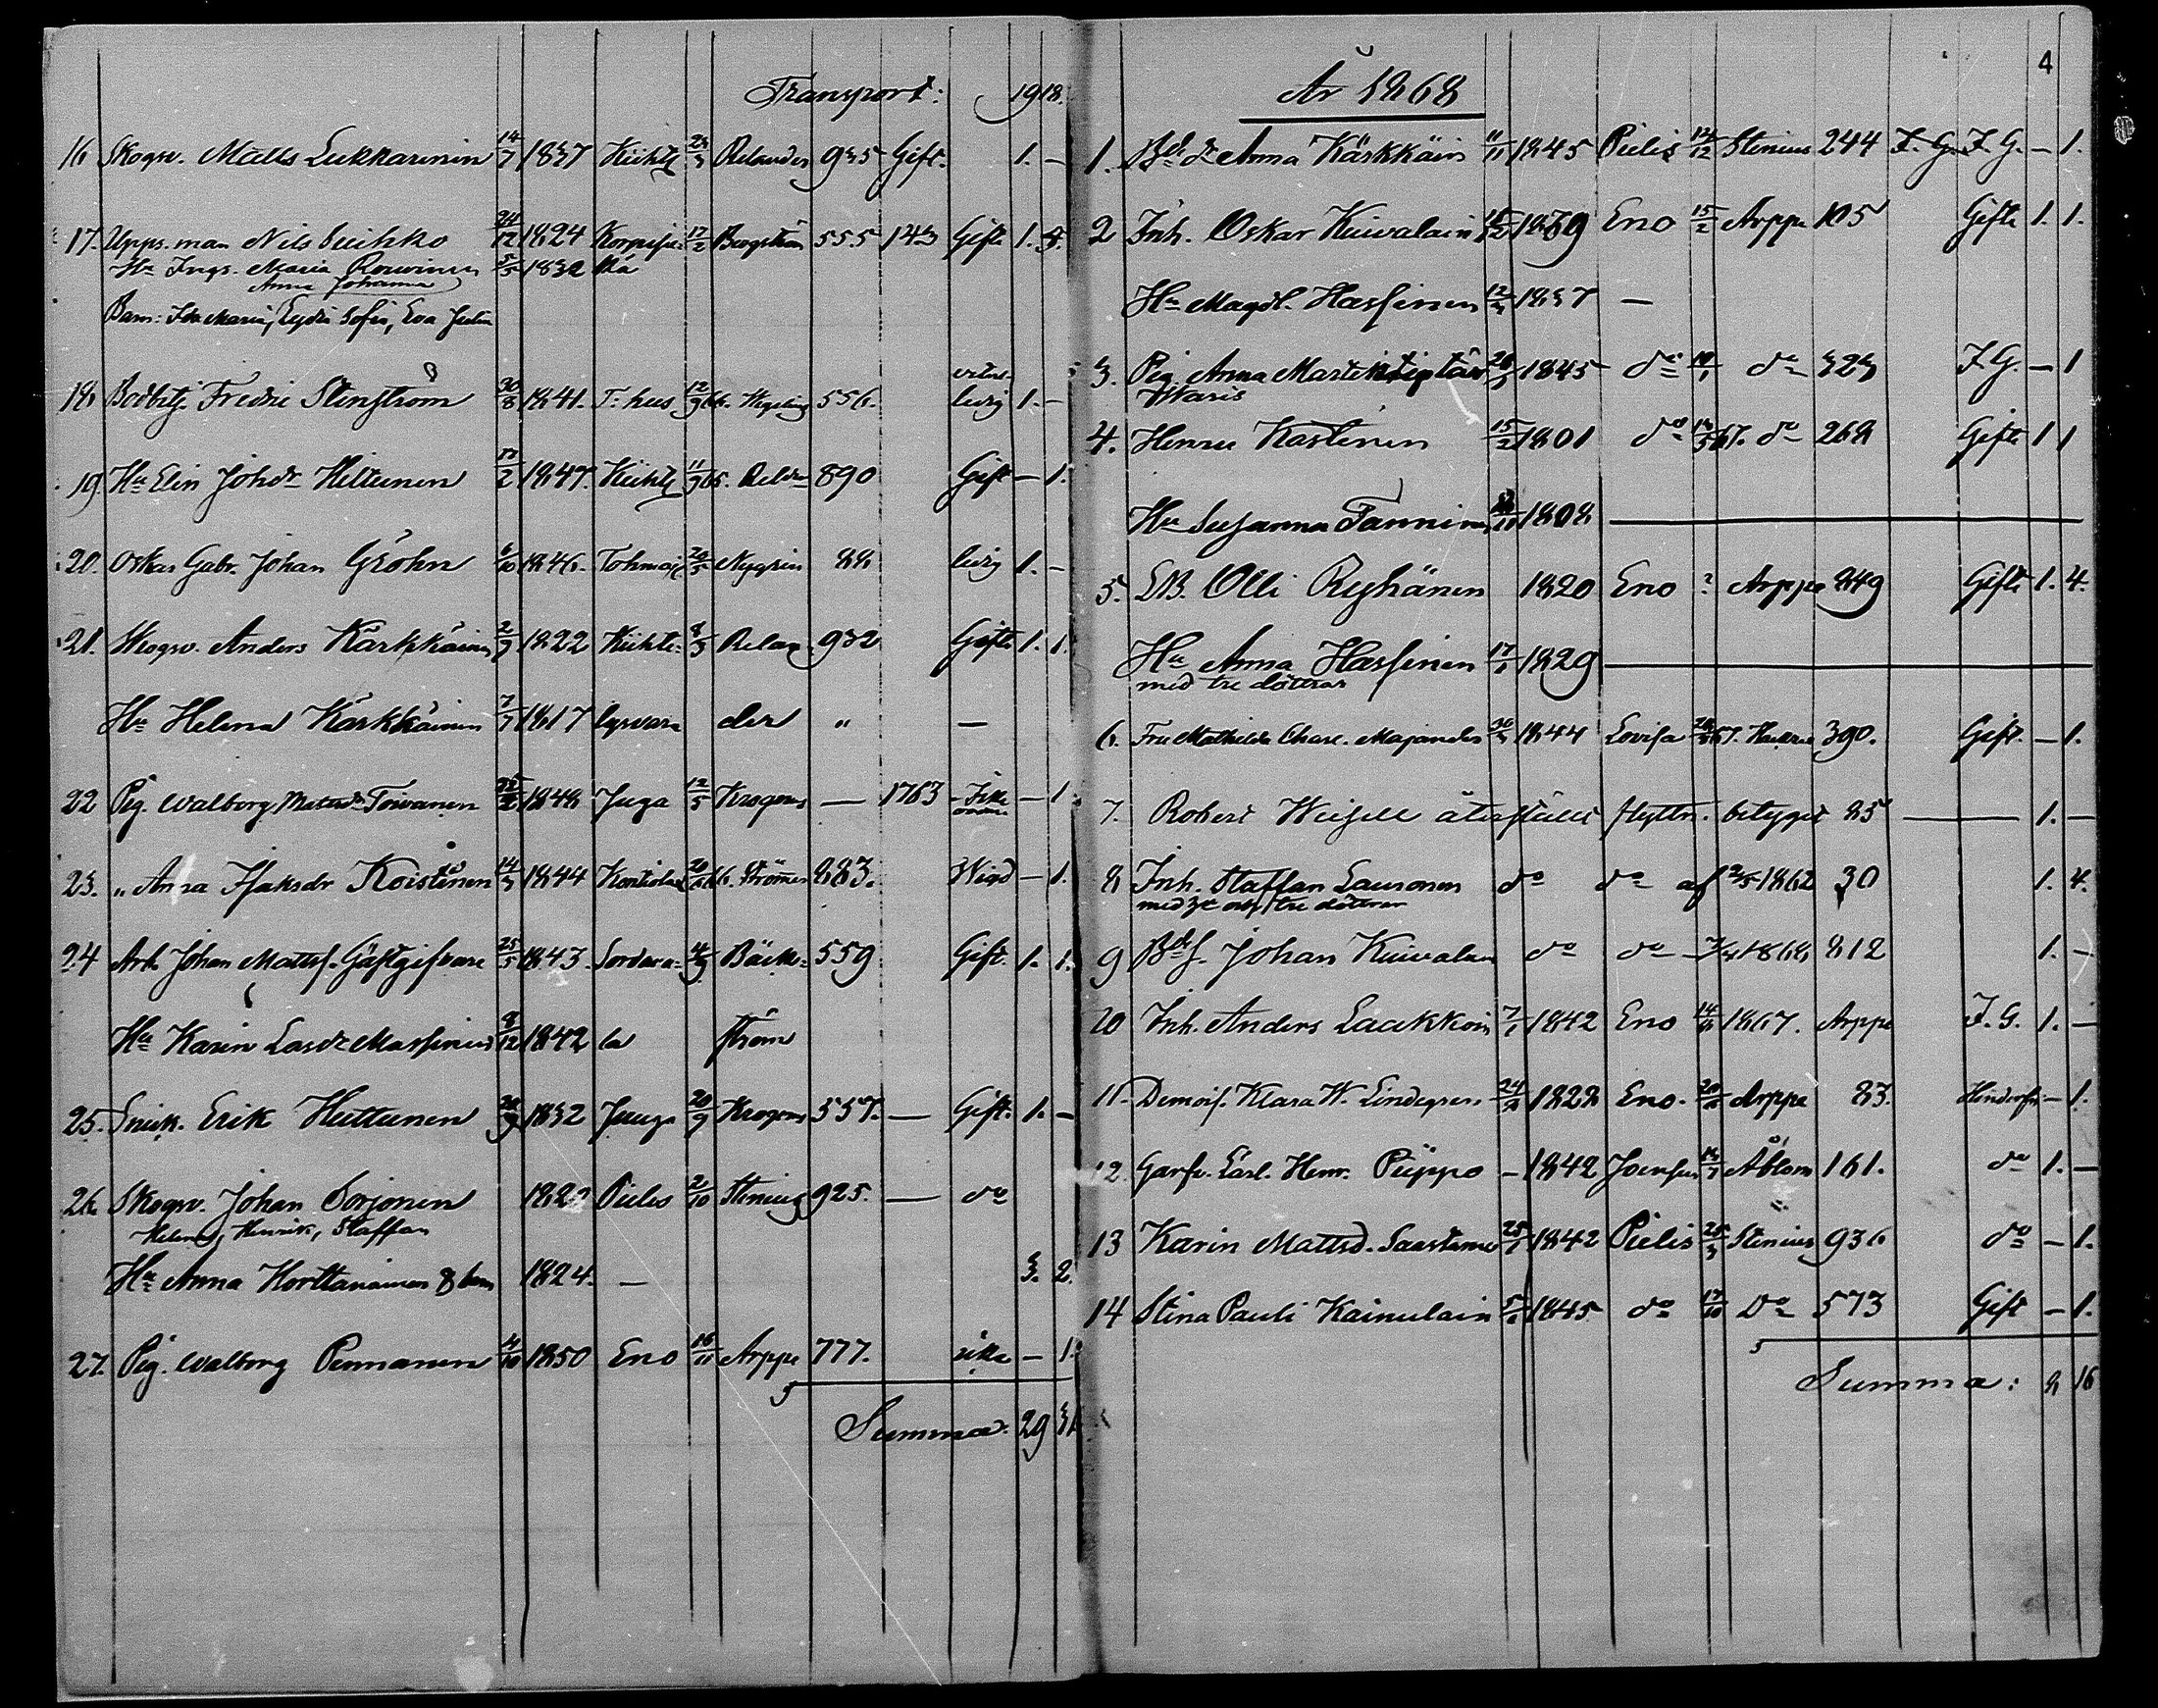 Transport: 19 18.
16 Skogv. Matts Lukkarinen 14/7 1837 Kiihtel 23/3 Relander 935 Gift. 1. —
17. Upps. man Nils Seihko 24/12 1824 Korpise 12/2 Bergström 555 143 Gift 1. 5.
Hu Ingr. Maria Rouvinen 5/5 1832 lká
Anna Johanna
Barn: Ida Maria, Lydia Sofia, Eva Julia
18 Bodbetj. Fredric Stenström 30/8 1841. T: hus 12/9 66. Wegelius 556. ledig 1. —
19. Hu Elin Johdr Hiltunen 17/2 1847. Kiihtel 11/9 65. Reldr 890 Gift — 1.
20. Oskar Gabr. Johan Gröhn 6/10 1846. Tohmaj 20/5 Nygrén 88 ledig 1. —
21. Skogv. Anders Karkkäinen 2/9 1822 Kiihte- 8/3 Relan 932 Gifte 1. 1.
Hu Helena Karkkäinen 7/7 1817 lysvara der " —
22 Pig. Walborg Mattsdr Toivanen 25/2 1848 Juga 12/5 Krogerus — 1763 Icke — 1.
23. " Anna Isaksdr Koistinen 14/3 1844 Kontiolax 20/ 66. Strömmer 883. Wigd — 1.
24 Arb. Johan Mattss. Gästgifvare 25/5 1843. Sordava- 4/9 Bäck- 559 Gift. 1. 1.
Hu Karin Lasdr Massinen 8/12 1842 la ström
25. Snick. Erik Huttunen 28/9 1832 Juuga 20/9 Krogerus 557. — Gift. 1. —
26. Skogv. Johan Sorjonen 182 Pielis 2/10 Stenius 925. — do
Helena, Henrik, Staffan
Hu Anna Korttanainen & barn 1824. — 3. 2.
27. Pig. Walborg Pennanen 4/10 1850 Eno 16/11 Arppe 777. icke — 1.
Summa: 29 31
4
År 1868
1. Bdedr Anna Kärkkäin 11/11 1845 Pielis 12/12 Stenius 244 I. G. I. G. — 1.
2 Inh. Oskar Kuivalain 1869 Eno 15/2 Arppe 105 Gifte 1. 1.
Hu Magdl. Hassinen 12/3 1837 —
3. Pig. Anna Marten 28/3 1845 do 10/1 do 323 I. G. — 1
4. Henric Kastinen 15/2 1801 do 67. do 268 Gifte 1 1
Hu Susanna Tanninen 1808 —
5. LB. Olli Ryhänen 1820 Eno ? Arppe 849 Gifte 1. 4.
Hu Anna Hassinen 17/1 1829 —
med tre döttrar
6. Fru Mathilda Charl. Majander 30/3 1844 Lovisa 67. 390. Gift. — 1.
7. Robert Weisell återstäld flyttn. betyget 85 — 1. —
8 Inh. Staffan Lauronen do do af 2/5 1862 30 1. 4.
med tre döttrar
9 Bds. Johan Kuivalan do do 7/4 1868 812 1. —
10 Inh. Anders Laakkoin 7/1 1842 Eno 1867. Arppe I. G. 1. —
11. Demois. Klara W. Lindegren 24/ 1822 Eno. 20/ Arppe 83. Hindersfri — 1.
12. Garfv. Lärl. Henr. Piippo — 1842 Joensuu Åblom 161. do 1. —
13 Karin Mattsd. Saastamo 25/1 1842 Pielis 25/3 Stenius 936 do — 1.
14 Stina Pauli Kainulain 1845 do 17/10 Do 573 Gift — 1.
Summa: 8 16